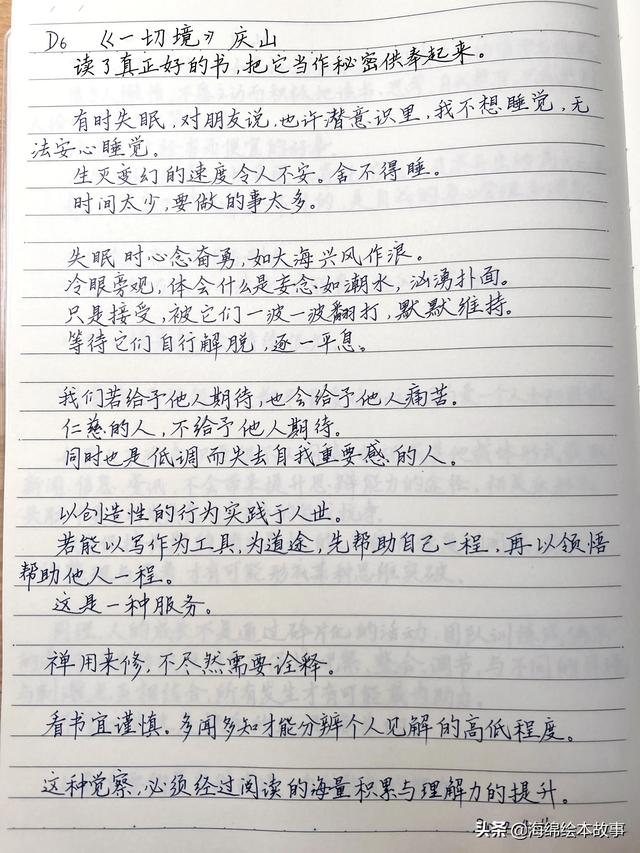 D6 《一切境》 庆山
读了真正好的书，把它当作秘密供奉起来。
有时失眠，对朋友说，也许潜意识里，我不想睡觉，无
法安心睡觉。
生灭变幻的速度令人不安。舍不得睡。
时间太少，要做的事太多。
失眠时心念奋勇，如大海兴风作浪。
冷眼旁观，体会什么是妄念如潮水，汹涌扑面。
只是接受，被它们一波一波翻打，默默维持。
等待它们自行解脱，逐一平息。
我们若给予他人期待，也会给予他人痛苦。
仁慈的人，不给予他人期待。
同时也是低调而失去自我重要感的人。
以创造性的行为实践于人世。
若能以写作为工具，为道途，先帮助自己一程，再以领悟
帮助他人一程。
这是一种服务。
禅用来修，不尽然需要诠释。
看书宜谨慎。多闻多知才能分辨个人见解的高低程度。
这种觉察，必须经过阅读的海量积累与理解力的提升。
头条 @海绵绘本故事